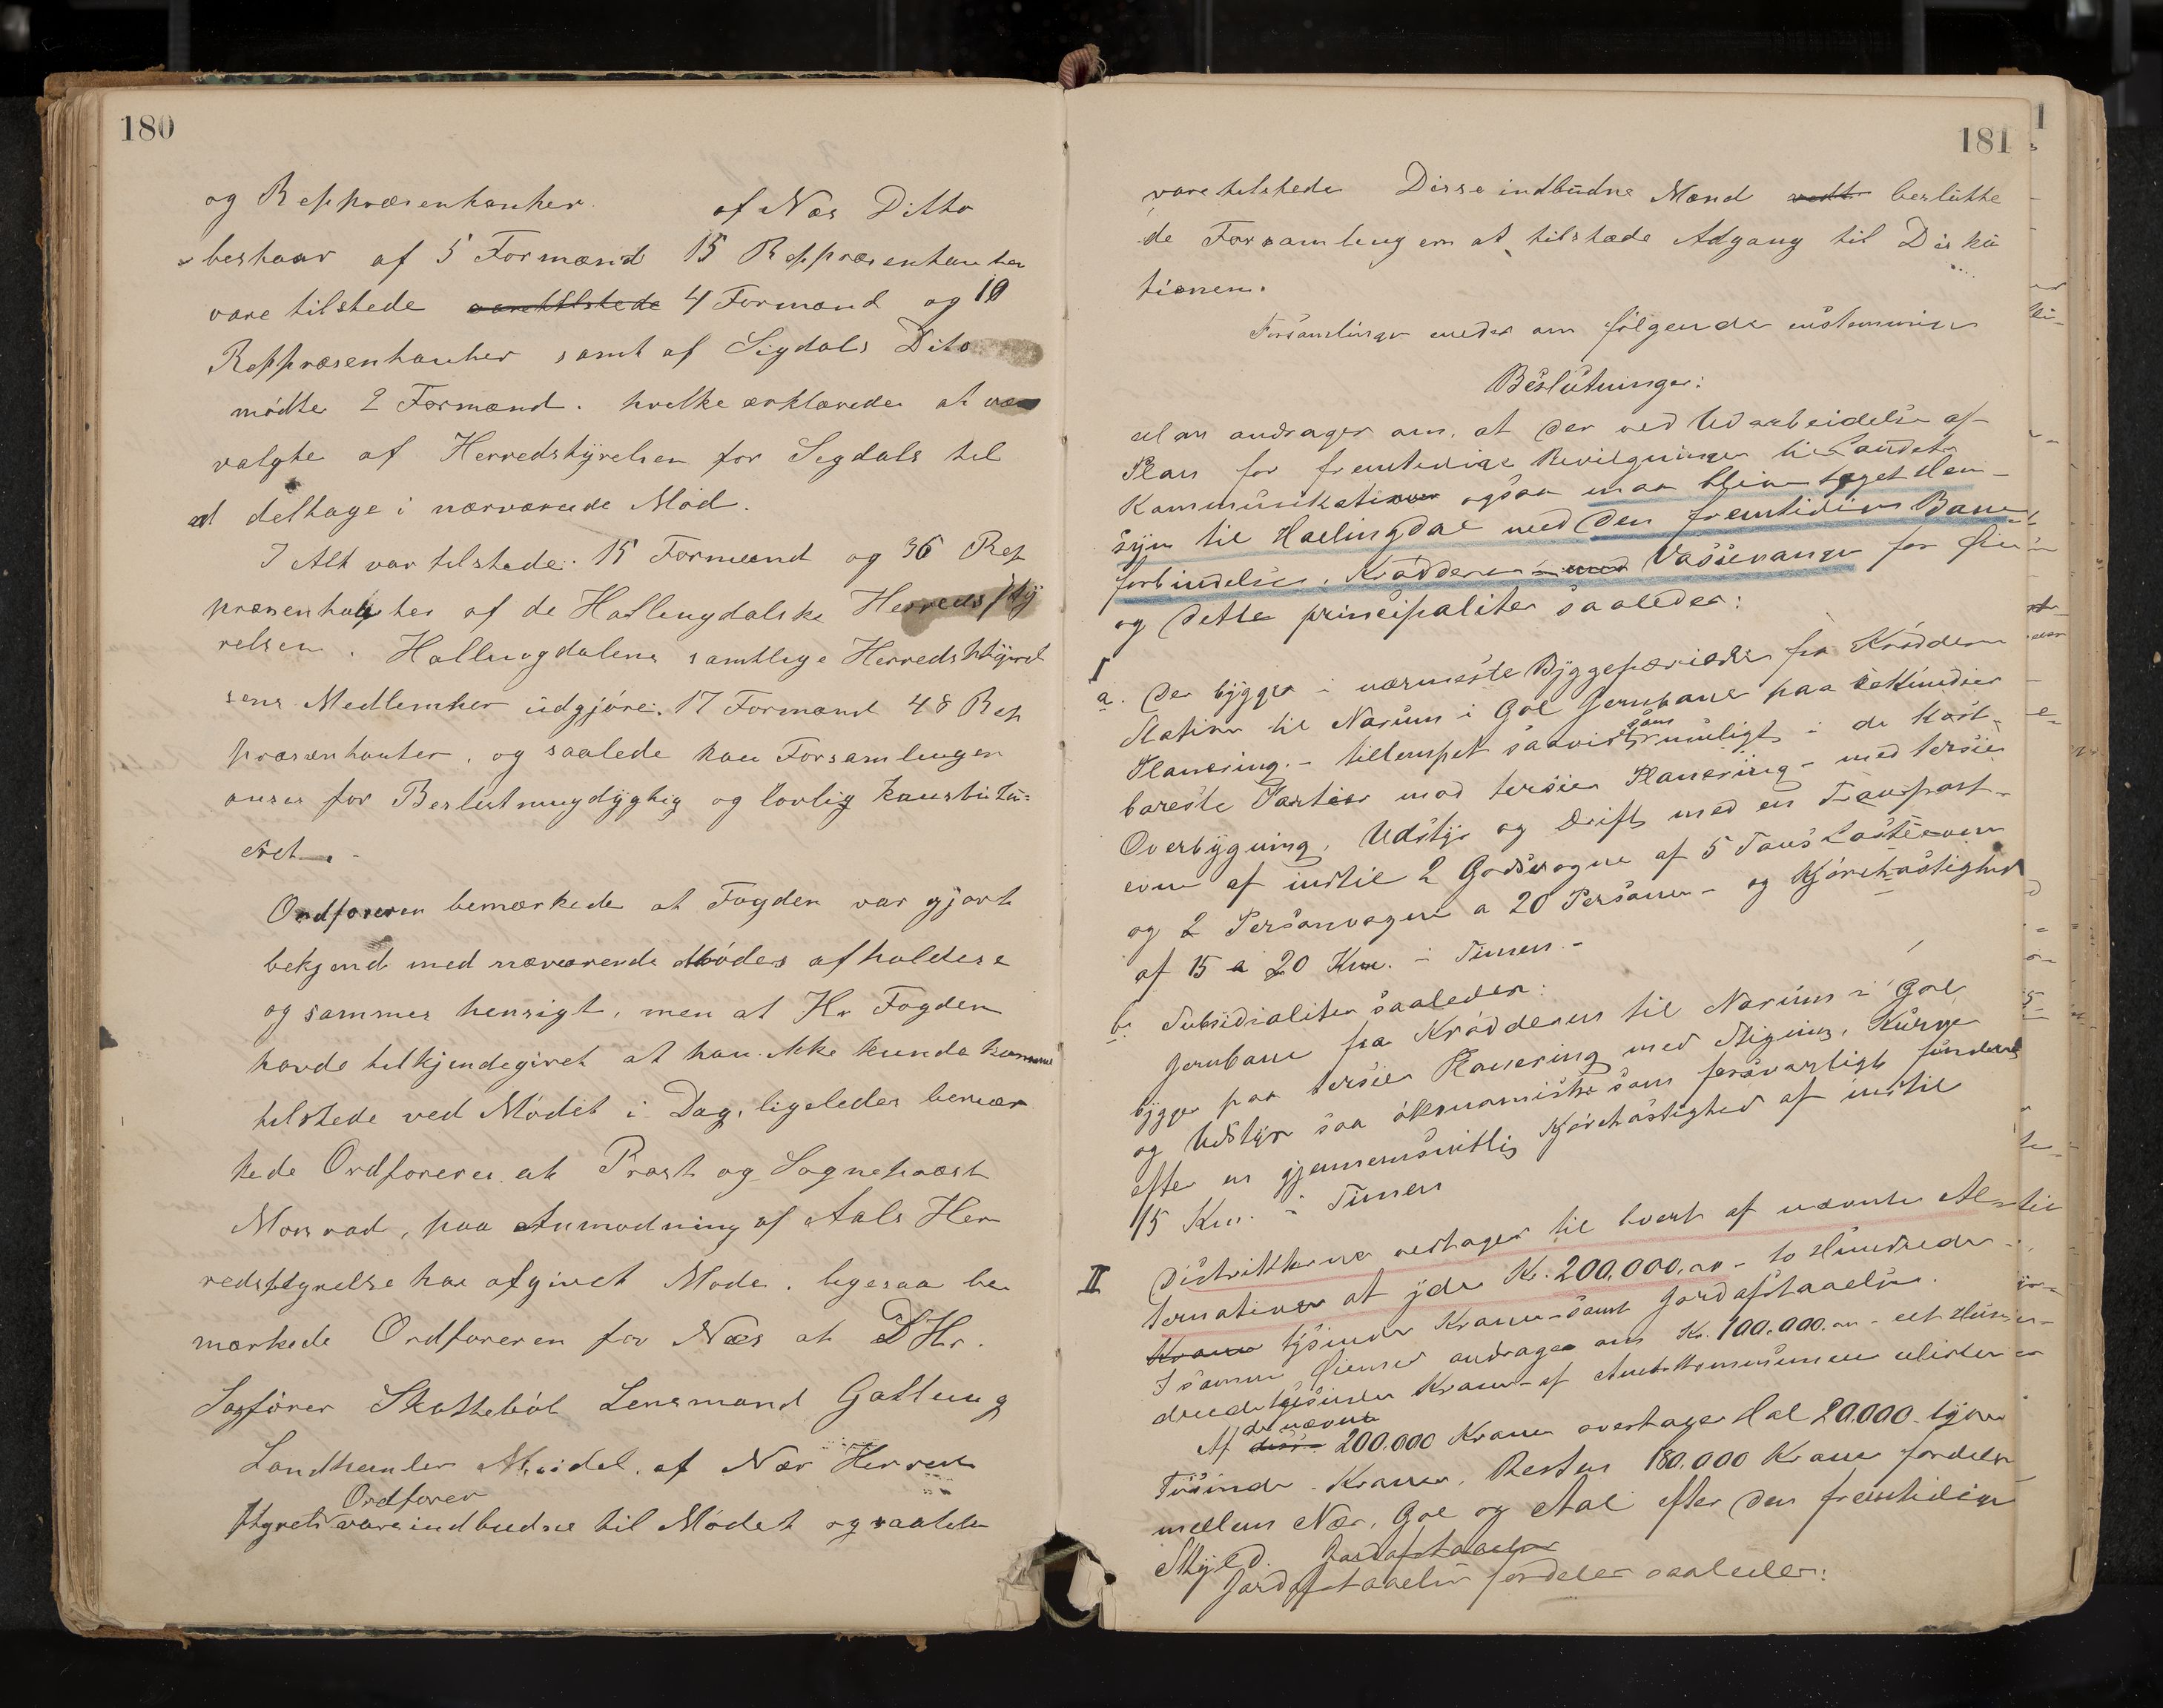 180
og Reppræsentanter. af Næs Ditto
bestaar af 5 Formænd 15 Reppræsentanter
vare tilstede varetilstede 4 Formænd og 10
Reppræsentanter samt af Sigdals Dito
mödte 2 Formænd. hvilke erklærede at være
valgte af Herredstyrelsen for Sigdals til
at deltage i nærværende Möd.
I Alt var tilstede. 15 Formænd og 36 Rep
præsentanter af de Hallingdalske Herredssty
relsen. Hallingdalens samtlige Herredsstyrel
sens Medlemher udgjöre. 17 Formænd 48 Rep
præsentanter, og saalede kan Forsamlingen
anses for Beslutningdygtig og lovlig Konstitu=
eret. -
Ordføreren bemærkede at Fogden var gjort
bekjend med nærværende Mödes afholdese
og sammes hensigt, men at Hr Fogden
havde tilkjendegivet at han ikke kunde komme
tilstede ved Mödet i Dag, ligeledes bemær
kede Ordføreren at Prost og Sogneprest
paa Anmodning af Aals Her
redsstyrelse har afgivet Möde. ligesaa be
mærkede Ordføreren for Næs at D'Hr.
Sagförer Skatteböl Lensmand Galtung
Landhandler af Næs Herreds
Ordfører
styrels vare indbudne til Mödet og saalede
181
vare tilstede Disse indbudne Mænd vedt beslutte
de Forsamlingen at tilstæde Adgang til Disku
tionen.
Forsamlingen enedes om fölgende enstemmige
Beslutninger:
Man andrager om, at der ved Udarbeidelse af
Plan for fremtidige Bevilgninger til Landets
Kommunikationer ogsaa maa blive taget Hen-
syn til Hallingdal med den fremtidige Bane
forbindelse, Kröderen med Vossevangen for Öie
og dette principaliter saaledes:
I
a. Der bygges i nærmeste Byggeperiode fra Kröderen
Station til Narum i Gol Jernbane paa sekundær
Planering. - tillempet saavidt som muligt i de kost-
bareste Partier mod tersiær Planering - med tersiær
Overbygning, Udstyr og Drift, med en Transport-
evne af indtil 2 Godsvogne af 5 Tons Lasteevne
og 2 Personvogne a 20 Personer - og Kjörehastighed
af 15 a 20 Km. i Timen. -
b. Subsidialiter saaledes:
Jernbane fra Kröderen til Narum i Gol
bygges paa tersiær Planering med Stigning, Kurver
og Udstyr saa ökonomiske som forsvarligt funderet
efter en gjennemsnittlig Kjörehastighed af indtil
15 Km. i Timen
II Distrikterne vedtager til hvert af nævnte Al-
ternativer at yde Kr. 200,000,00 - to Hundrede
Krone tysinde Kroner - samt Jordafstaaelse.
I samme Öiemed andrages om Kr. 100,000.00 - et Hun-
drede tysinde Kroner - af Amtskommunen
Af disse de nævnte 200.000 Kroner overtager Hol 20,000 tyve
Tusinde Kroner. Resten 180.000 Krone fordeles
mellem Næs, Gol og Aal efter den fremtidige
Skyld. Jordafstaaelse
Jordafstaaelse fordeles saaledes: